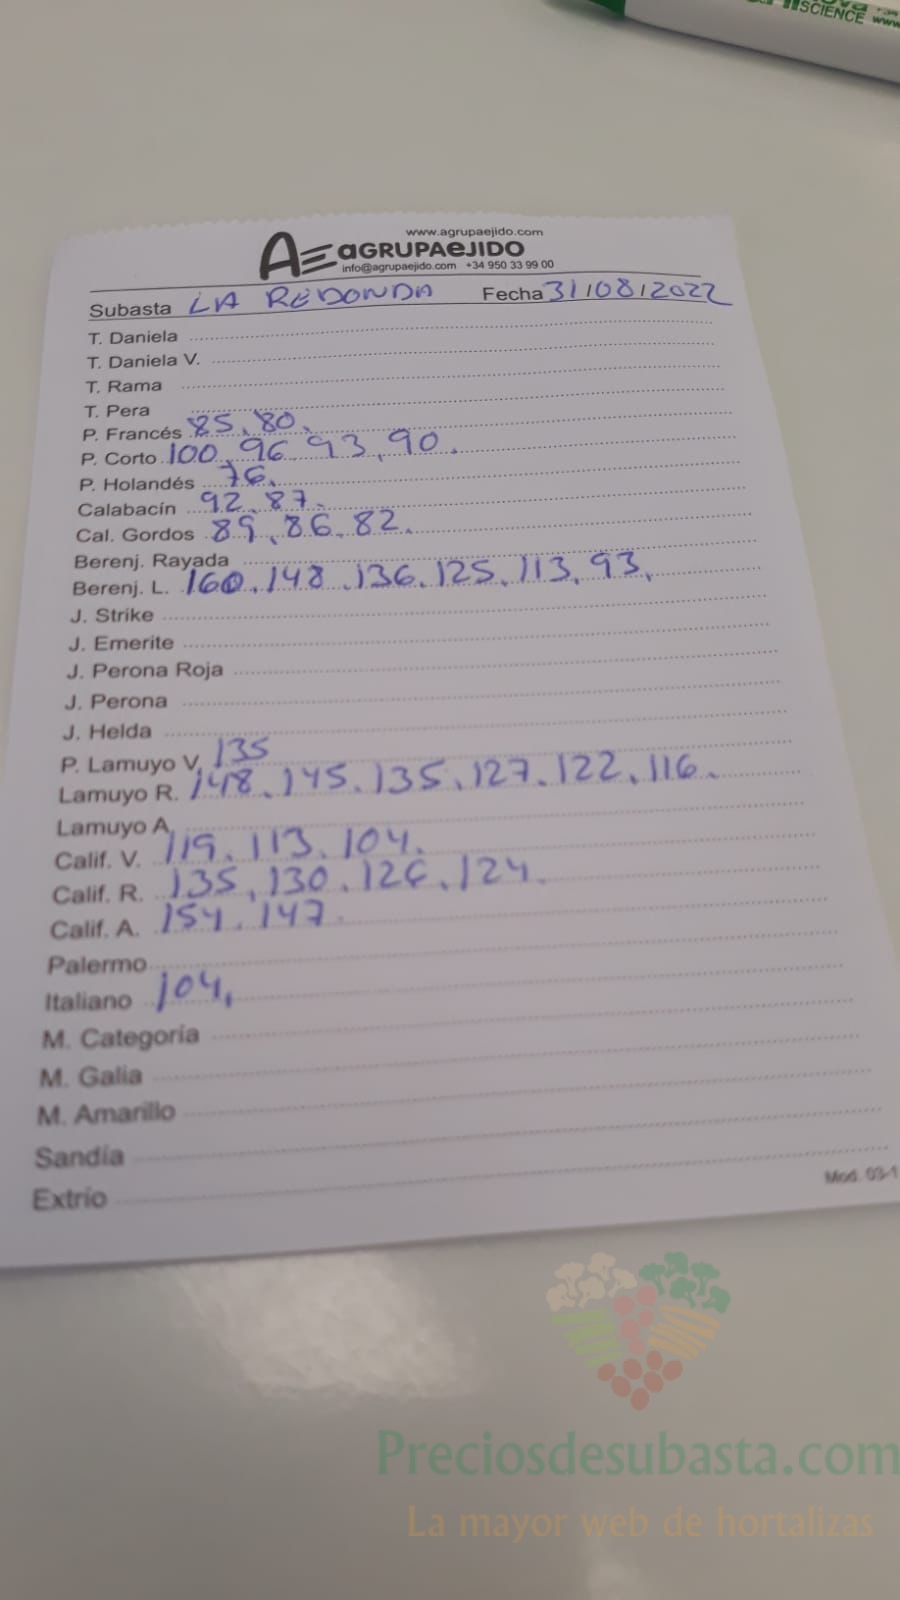 SCIENCE www
www.agrupaejido.com
AGRUPAEJIDO
info@agrupaejido.com +34 950 33 99 00
Subasta LA REDONDA Fecha 31/08/2022
T. Daniela
T. Daniela V.
T. Rama
T. Pera
P. Francés 85. 80.
P. Corto 100. 96. 93. 90.
P. Holandés 76.
Calabacín 92. 87.
Cal. Gordos 89. 86. 82.
Berenj. Rayada
Berenj. L. 160. 148. 136. 125. 113. 93.
J. Strike
J. Emerite
J. Perona Roja
J. Perona
J. Helda
P. Lamuyo V. 135
Lamuyo R. 148. 145. 135. 127. 122. 116.
Lamuyo A.
Calif. V. 119. 113. 104.
Calif. R. 135. 130. 126. 124.
Calif. A. 154. 147.
Palermo
Italiano 104.
M. Categoría
M. Galia
M. Amarillo
Sandía
Extrío
Mod. 03-1
Preciosdesubasta.com
La mayor web de hortalizas